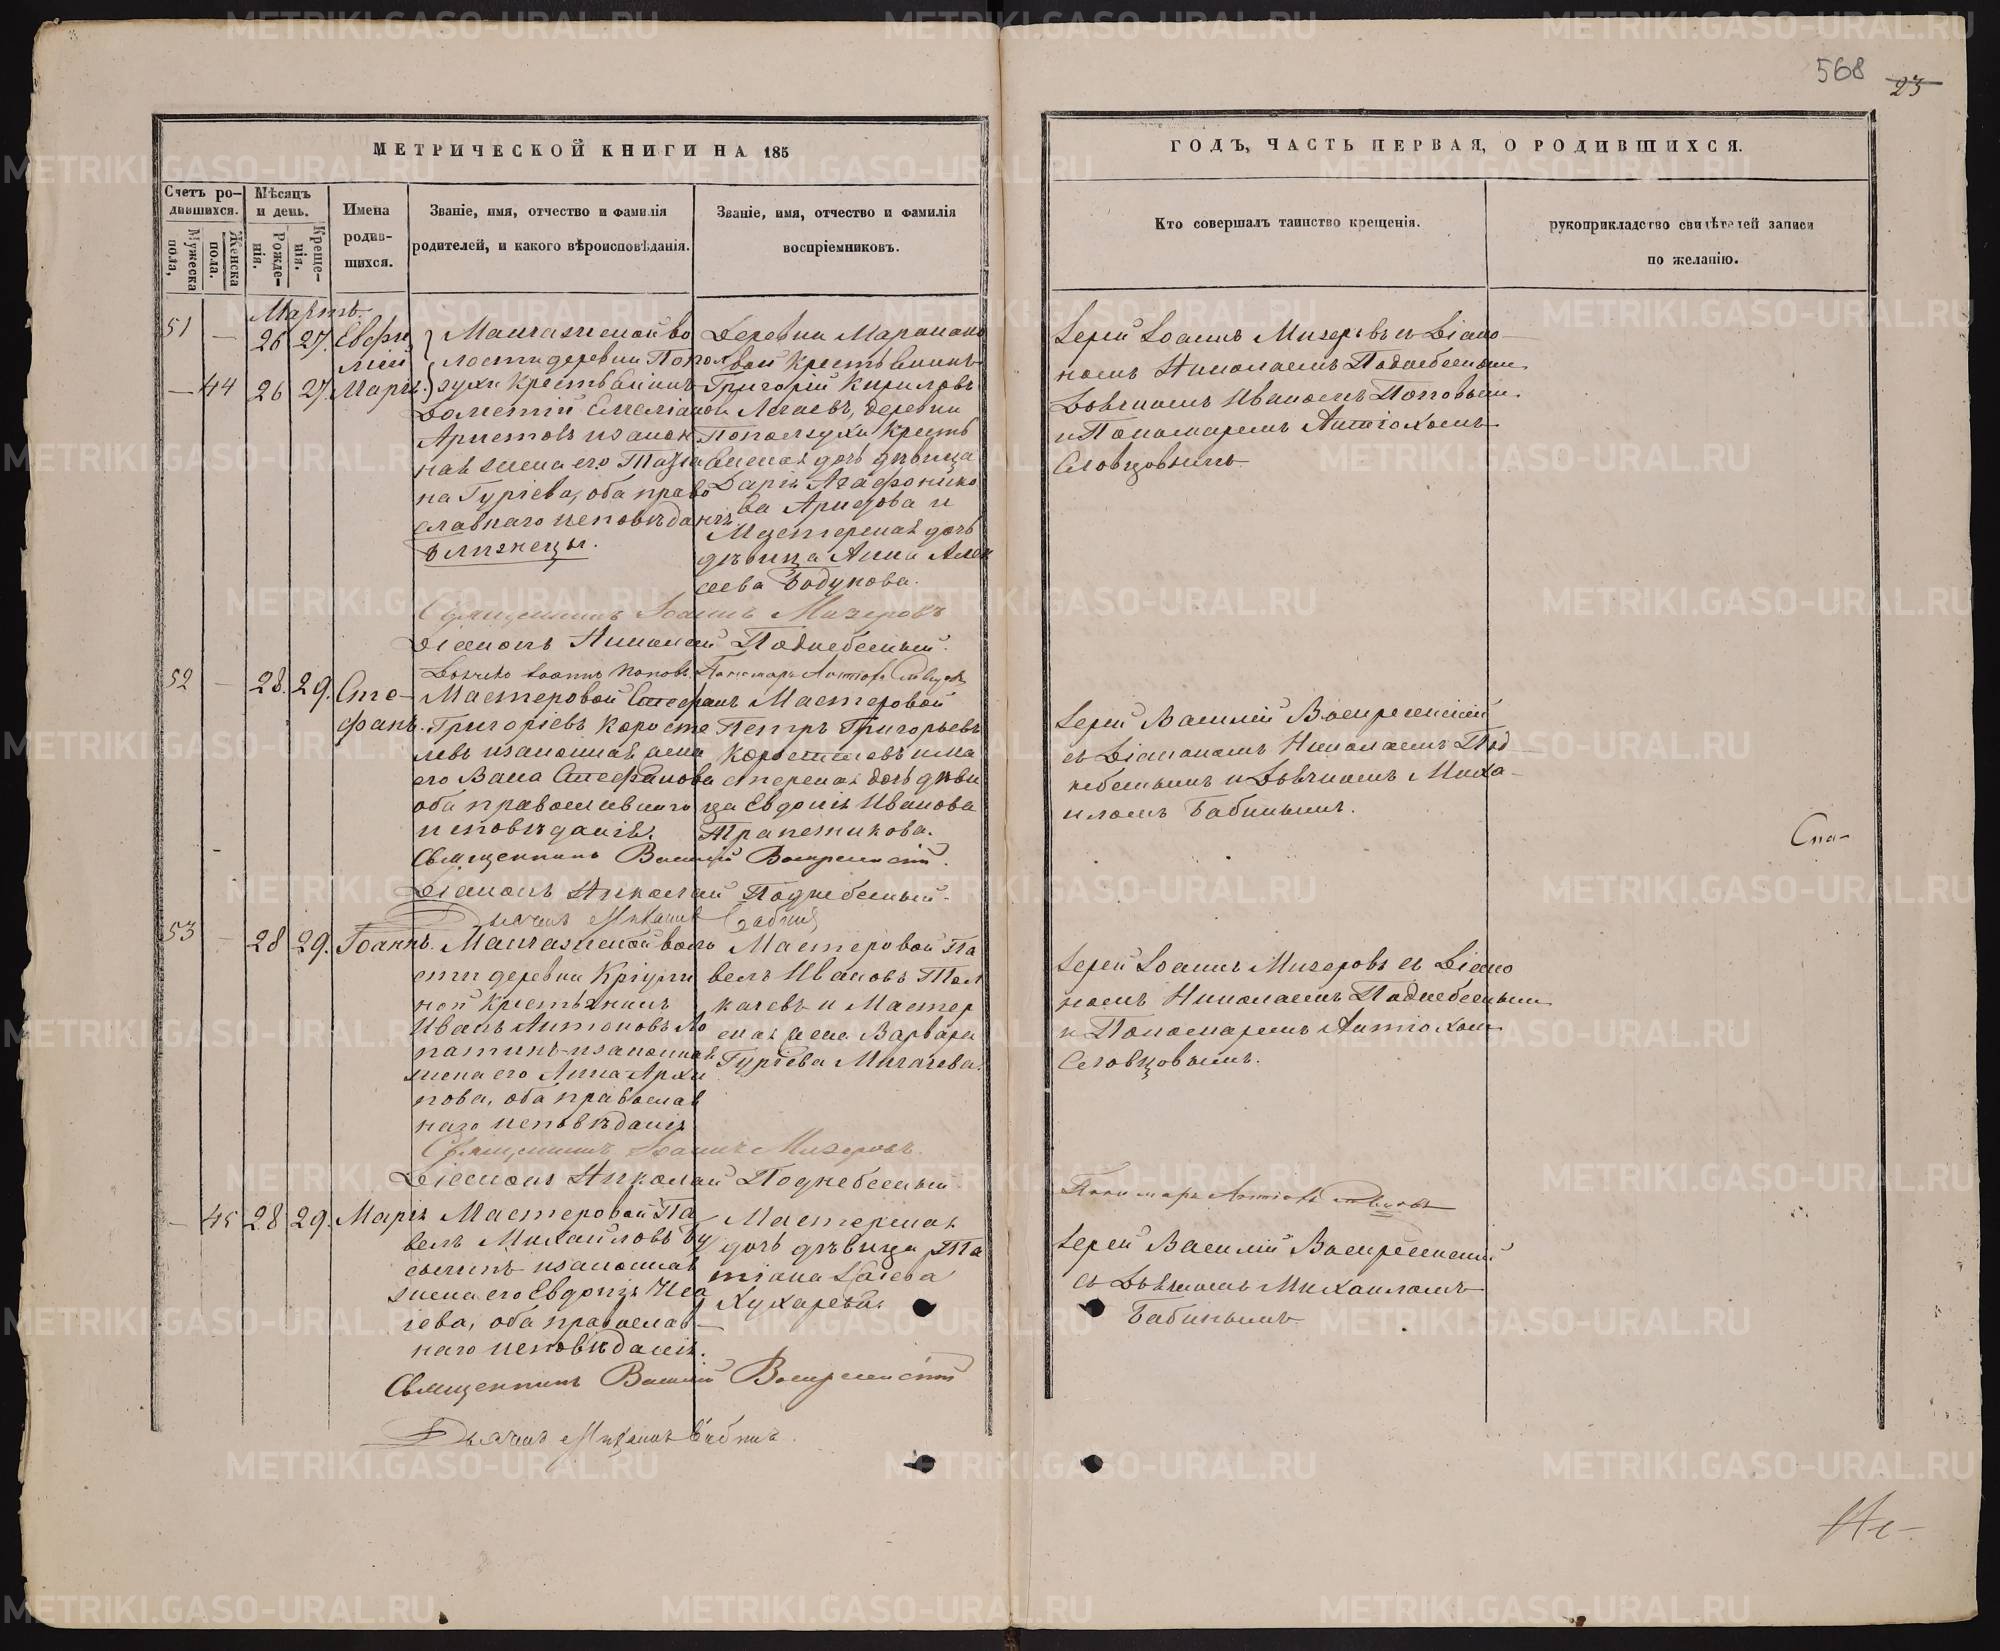 568
23
МЕТРИЧЕСКОЙ КНИГИ НА 185
ГОДЪ, ЧАСТЬ ПЕРВАЯ, О РОДИВШИХСЯ.
Счетъ ро-
дившихся.
Мужеска
пола,
Женска
пола.
Мѣсяцъ
и день.
Рожде-
нія.
Креще-
нія.
Имена
родив-
шихся.
Званіе, имя, отчество и фамилія
родителей, и какого вѣроисповѣданія.
Званіе, имя, отчество и фамилія
воспріемниковъ.
Кто совершалъ таинство крещенія.
рукоприкладство свидѣтелей записи
по желанію.
Мартъ.
51 — 26 27. Евфи
мій
— 44 26 27. Марія.
Манчажской во
лости деревни Попол
зухи крестьянинъ
Дометій Емеліан
Аристовъ и законъ
ная жена его Татіа
на Гуріева, оба право
славнаго исповѣданія.
Близнецы.
Деревни
крестьянинъ
Григорій Кириловъ
деревни
Поползухи крестья
нская дочь дѣвица
Дарія Агафонико
ва
и
Мастерская дочь
дѣвица Анна Алек
сеева Бодунова.
Іерей Іоаннъ Мизеровъ съ Діако
номъ Николаемъ Поднебеснымъ
Дьячкомъ Иваномъ Поповымъ
и Пономаремъ Антіохомъ
Словцовымъ.
Священникъ Іоаннъ Мизеровъ
Діаконъ Николай Поднебесный.
Дьячекъ Іоаннъ Поповъ. Пономарь Антіохъ Словцовъ
52 — 28. 29. Сте-
фанъ.
Мастеровой Стефанъ
Григоріевъ Коросте
левъ и законная жена
его Васса Стефанова
оба православнаго
исповѣданія.
Мастеровой
Петръ Григорьевъ
Коростелевъ и ма
стерская дочь дѣви
ца Евдокія Иванова
Трапезникова.
Іерей Василій Воскресенскій
съ Діакономъ Николаемъ Под
небеснымъ и Дьячкомъ Миха-
иломъ Бабинымъ.
Священникъ Василій Воскресенскій.
Діаконъ Николай Поднебесный.
Дьячекъ Михаилъ Бабинъ
Сна-
53 — 28 29. Іоаннъ.
Манчажской воло
сти деревни
крестьянинъ
Иванъ Антоновъ Ло
патинъ и законная
жена его Анна Архи
пова, оба православ
наго исповѣданія
Мастеровой Па
велъ Ивановъ Тол
качевъ и Мастер
ская жена Варвара
Гуріева Мигачева.
Іерей Іоаннъ Мизеровъ съ Діако
номъ Николаемъ Поднебеснымъ
и Пономаремъ Антіохомъ
Словцовымъ.
Священникъ Іоаннъ Мизеровъ.
Діаконъ Николай Поднебесный.
Пономарь Антіохъ Словцовъ
— 45 28 29. Марія
Мастеровой Па
велъ Михайловъ
и законная
жена его Евдокія Иса
іева, оба православ
наго исповѣданія.
Мастерская
дочь дѣвица Та
тіана Исаіева
Кухарева.
Іерей Василій Воскресенскій
съ Дьячкомъ Михаиломъ
Бабинымъ
Священникъ Василій Воскресенскій
Дьячекъ Михаилъ Бабинъ.
METRIKI.GASO-URAL.RU